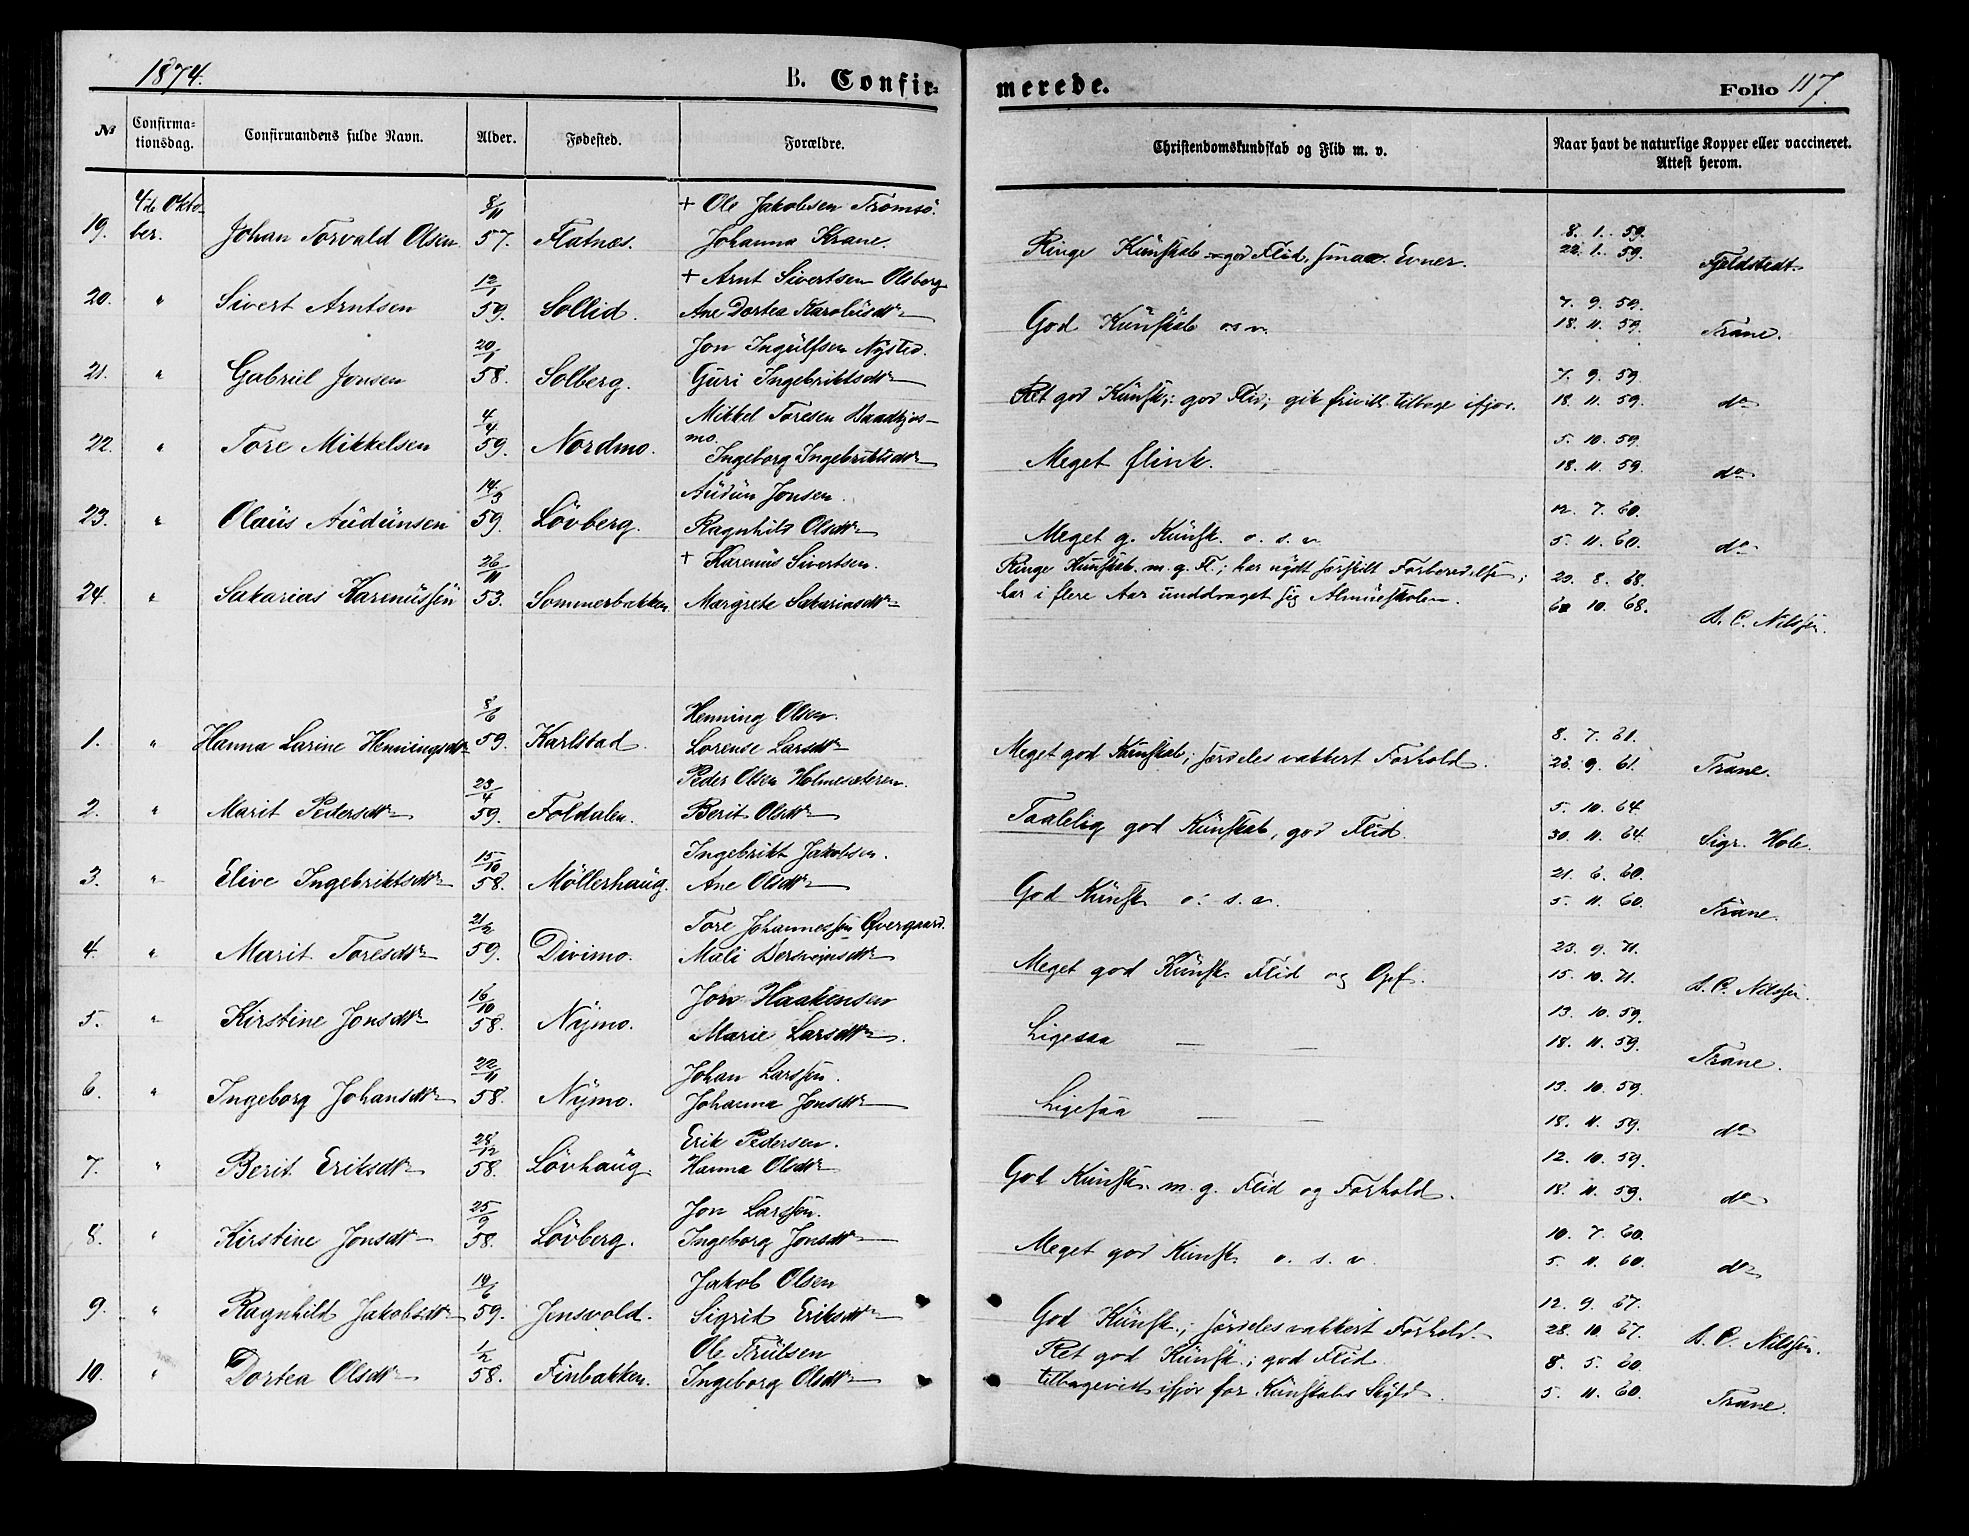 1874. B. Confirmerede. Folio 117.
№ Confirmationsdag. Confirmandens fulde Navn. Alder. Fødested. Forældre. Christendomskundskab og Flid m. v. Naar havt de naturlige Kopper eller vaccineret. Attest herom.
4de Okto- 8/11 + Ole Jakobsen Tromsö. 8. 1. 59.
19. ber. Johan Torvald Olsen 57. Flatnæs. Johanna Krane. Ringe Kunskab god Flid, smaa Evner. 22. 1. 59. Fjeldstedt
12/1 + Arnt Sivertsen Olsborg 7. 9. 59.
20. " Sivert Arntsen 59. Sollid. Ane Dortea Karolusdtr God Kunskab osv. 18. 11. 59. Trane.
20/1 Jon Ingulfsen Nysted. 7. 9. 59.
21. " Gabriel Jonsen 58. Solberg. Guri Ingebriktsdtr Ret god Kunsk.; god Flid; gik frivilt. tilbage ifjor. 18. 11. 59. do
4/4 Mikkel Toresen 5. 10. 59.
22. " Tore Mikkelsen 59. Nordmo. mo. Ingeborg Ingebriktsdtr Meget flink. 18. 11. 59. do
14/3 Audun Jonsen. 12. 7. 60.
23. " Olaus Audunsen 59. Lövberg. Ragnhild Olsdtr Meget g. Kunsk. o. s. v. 5. 11. 60. do
26/11 + Karenus Sivertsen. Ringe Kunskab. m. g. Fl.; har nydt særskilt Forberedelse; 20. 8. 68.
24. " Sakarias Karenussen 53. Sommerbakken. Margrete Sakariasdtr har i flere Aar unddraget sig Almueskolen. 10. 68. L. C. Nilssen.
8/6 Henning Olsen. 8. 7. 61.
1. " Hanna Larine Henningsdtr 59. Karlstad. Lorense Larsdtr Meget god Kunskab; særdeles vakkert Forhold. 23. 9. 61. Trane.
23/4 Peder Olsen Holmesæteren. 5. 10. 64.
2. " Marit Pedersdtr 59. Foldalen. Berit Olsdtr Taalelig god Kunskab, god Flid. 30. 11. 64. Sigr. Hole.
15/10 Ingebrikt Jakobsen. 21. 6. 60.
3. " Elive Ingebriktsdtr 58. Möllerhaug. Ane Olsdtr God Kunsk o. s. v. 5. 11. 60. Trane.
21/2 Tore Johannessen Øvergaard. 23. 9. 71.
4. " Marit Toresdtr 59. Divimo. Mali Bersvensdtr Meget god Kunsk. Flid og Opf. 15. 10. 71. L. C. Nilssen.
16/10 Jon Haakensen 13. 10. 59.
5. " Kirstine Jonsdtr 58. Nymo. Marie Larsdtr. Ligesaa — — 18. 11. 59. Trane.
22/11 Johan Larssen. 13. 10. 59.
6. " Ingeborg Johansdtr 58. Nymo. Johanna Jonsdtr Ligesaa — — 18. 11. 59. do
28/12 Erik Pedersen. 12. 10. 59.
7. " Berit Eriksdtr 58. Lövhaug. Hanna Olsdtr God Kunsk. m. g. Flid og Forhold. 18. 11. 59. do
25/9 Jon Larssen. 10. 7. 60.
8. " Kirstine Jonsdtr 58. Lövberg. Ingeborg Jonsdtr Meget god Kunsk. o. s. v. 5. 11. 60. do
19/6 Jakob Olsen 12. 9. 67.
9. " Ragnhild Jakobsdtr 59. Jensvold. Sigrid Eriksdtr God Kunsk.; særdeles vakkert Forhold. 28. 10. 67. L. C. Nilssen.
1/2 Ole Trulsen Ret god Kunsk.; god Flid. 8. 5. 60.
10. " Dortea Olsdtr 58. Finbakken. Ingeborg Olsdtr tilbagevist ifjor for Kunskabs Skyld. 5. 11. 60. Trane.